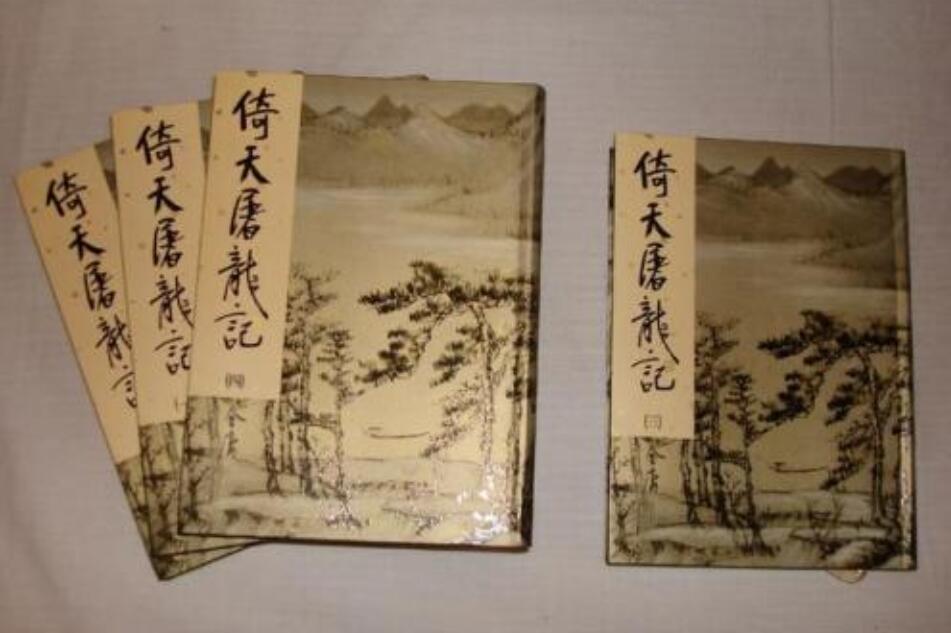 倚天屠龍記
倚天屠龍記
倚天屠龍記
四
金庸
倚天屠龍記
三
金庸